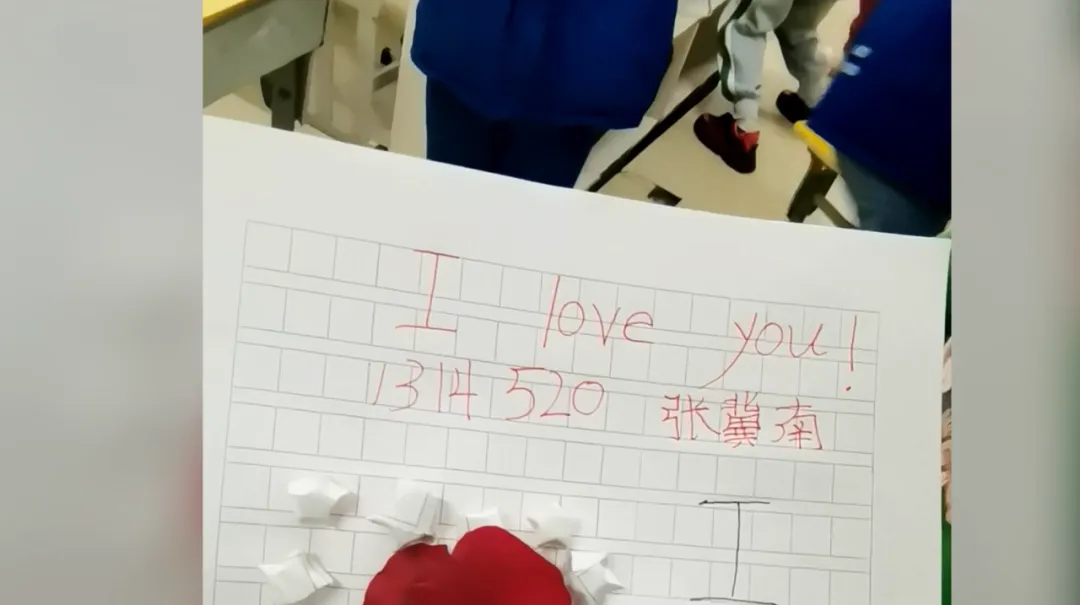 I love you!
1314 520 张冀南
I